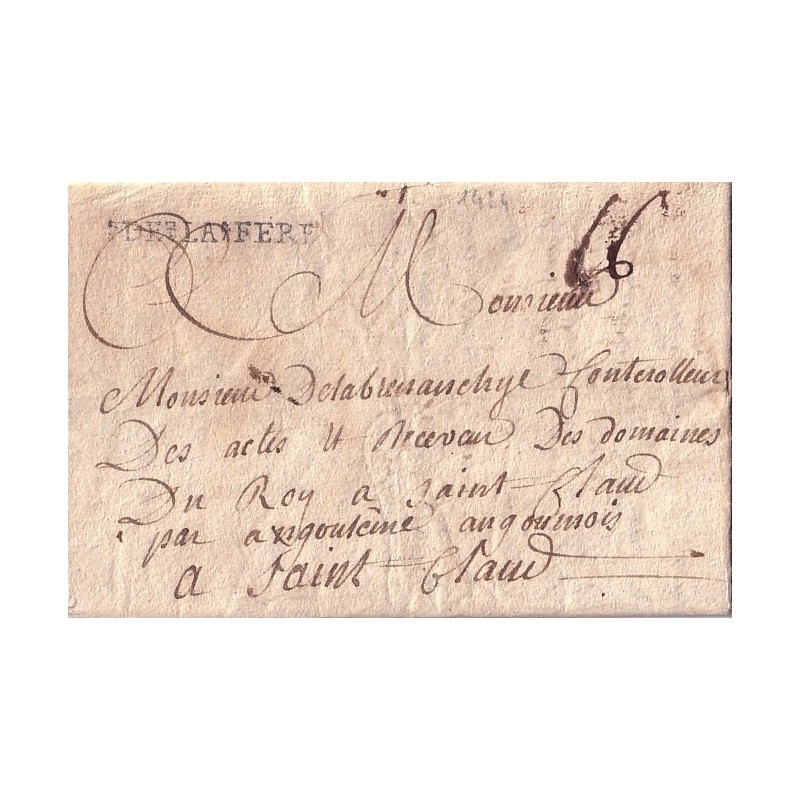 DE LA FERE
16
Monsieur
Monsieur Delabrenanchye Conterolleur
Des actes Et Receveur Des domaines
Du Roy a Saint Claud
par angoulême angoumois
a Saint Claud